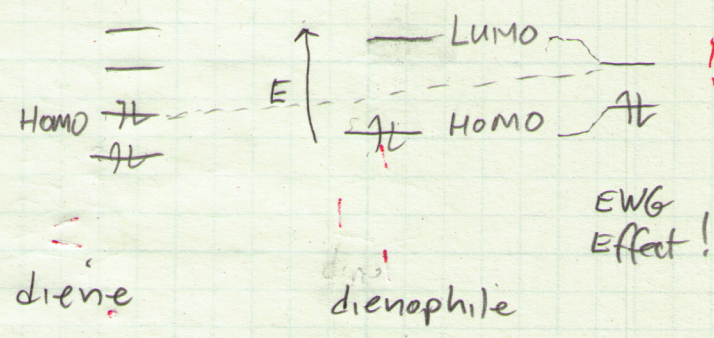 LUMO
E
HOMO
HOMO
EWG
Effect!
diene
dienophile